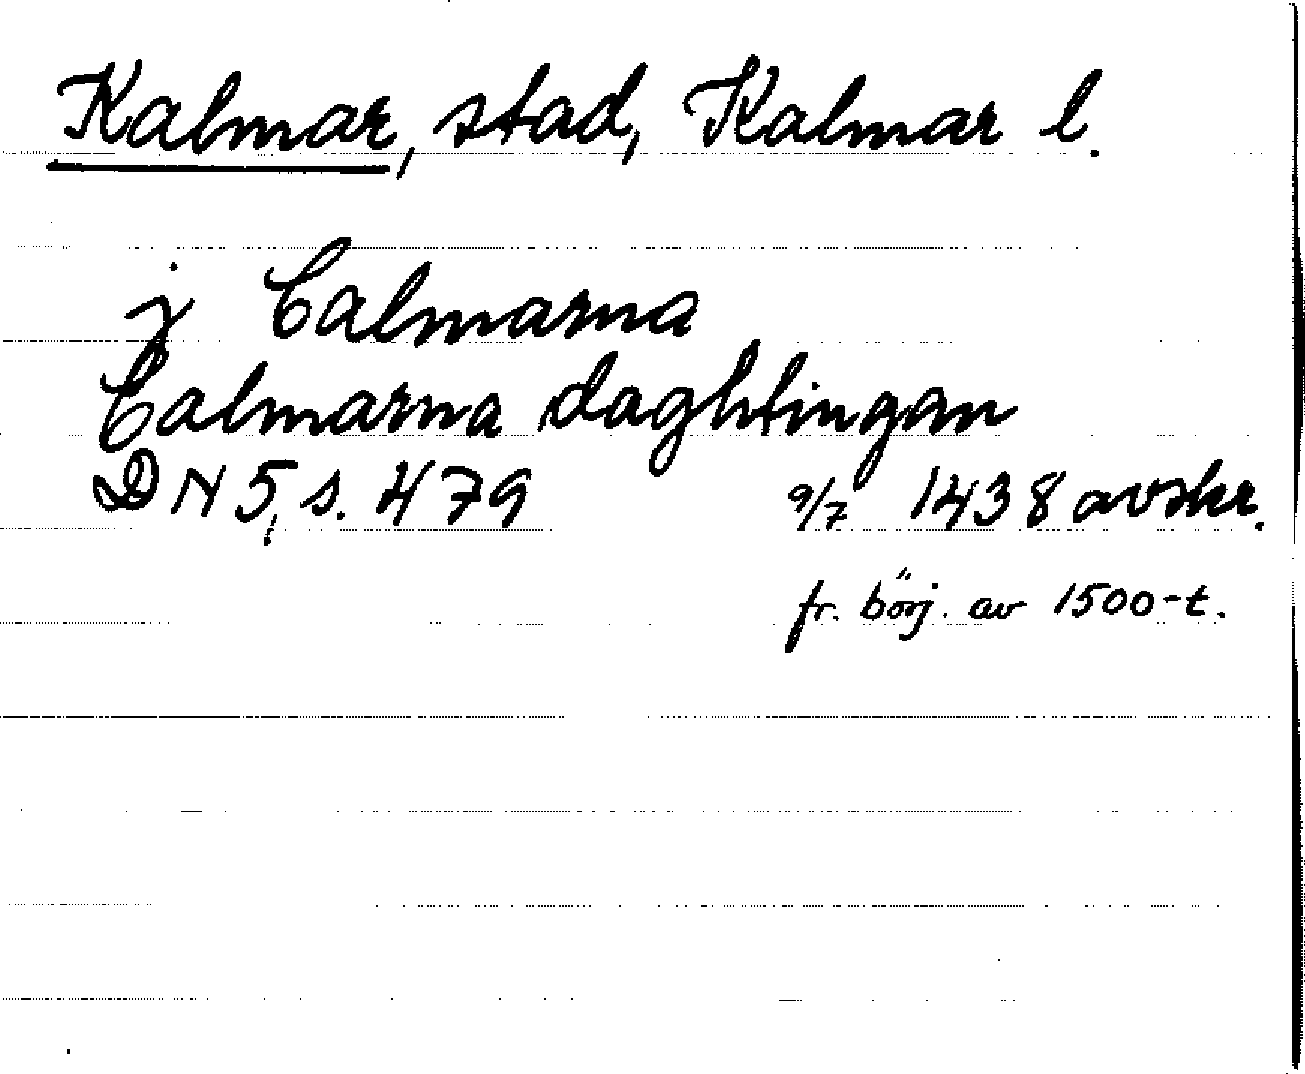 Kalmar, stad, Kalmar l.
j Calmarna
Calmarna daghtingan
DN 5, s. 479 9/7 1438 avskr.
fr. börj. av 1500-t.